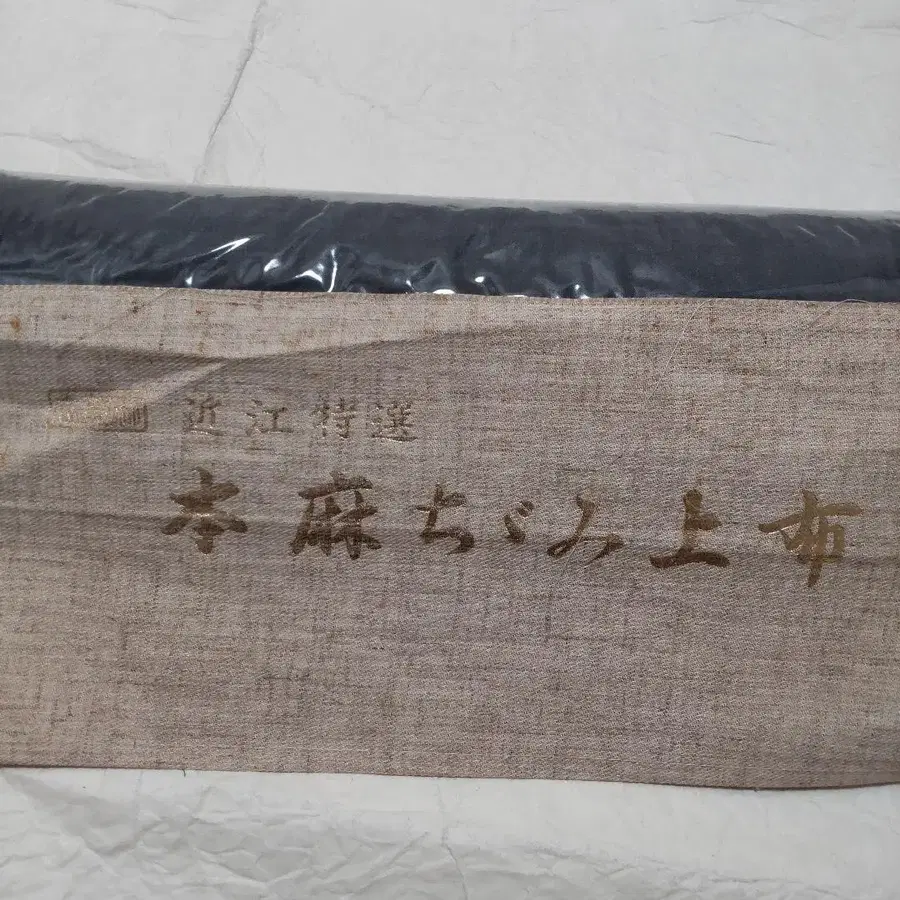 近江特選
本麻ちゞみ上布